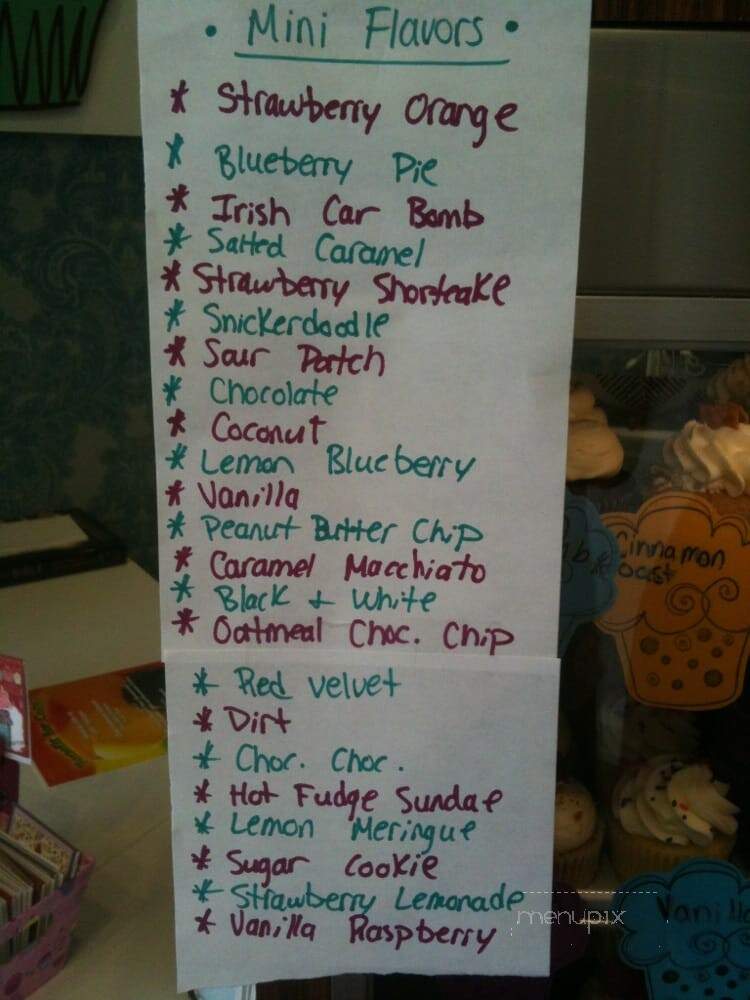 • Mini Flavors •
* Strawberry Orange
* Blueberry Pie
* Irish Car Bomb
* Salted Caramel
* Strawberry Shortcake
* Snickerdoodle
* Sour Patch
* Chocolate
* Coconut
* Lemon Blueberry
* Vanilla
* Peanut Butter Chip
* Caramel Macchiato
* Black + White
* Oatmeal Choc. Chip
* Red Velvet
* Dirt
* Choc. Choc.
* Hot Fudge Sundae
* Lemon Meringue
* Sugar Cookie
* Strawberry Lemonade
* Vanilla Raspberry
Cinnamon
menupix